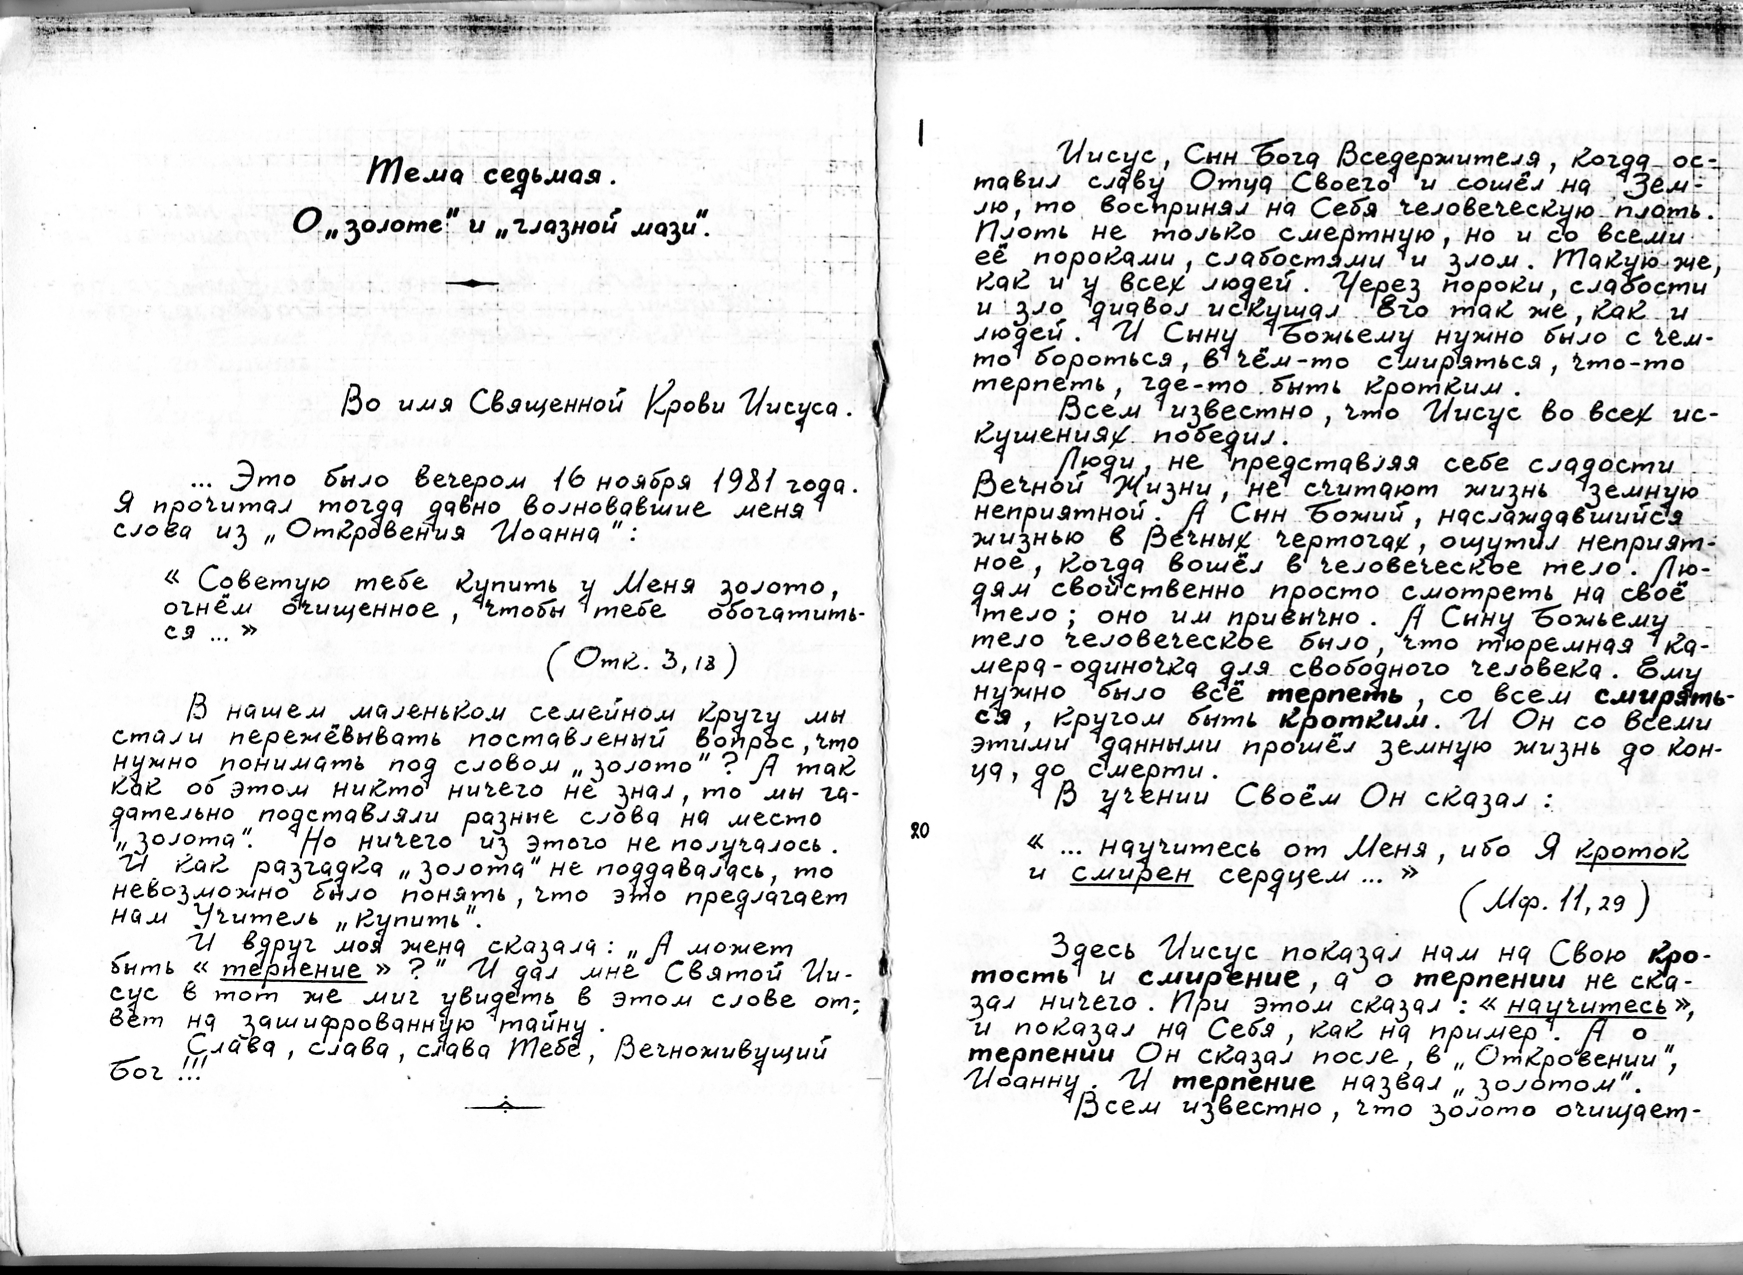 Тема седьмая.
О „золоте" и „глазной мази".
Во имя Священной Крови Иисуса.
... Это было вечером 16 ноября 1981 года.
Я прочитал тогда давно волновавшие меня
слова из „Откровения Иоанна":
« Советую тебе купить у Меня золото,
огнём очищенное, чтобы тебе обогатить-
ся ... »
(Отк. 3, 18)
В нашем маленьком семейном кругу мы
стали пережёвывать поставленый вопрос, что
нужно понимать под словом „золото"? А так
как об этом никто ничего не знал, то мы га-
дательно подставляли разные слова на место
„золота". Но ничего из этого не получалось.
И как разгадка „золота" не поддавалась, то
невозможно было понять, что это предлагает
нам Учитель „купить".
И вдруг моя жена сказала: „А может
быть « терпение » ?" И дал мне Святой Ии-
сус в тот же миг увидеть в этом слове от-
вет на зашифрованную тайну.
Слава, слава, слава Тебе, Вечноживущий
Бог !!!
Иисус, Сын Бога Вседержителя, когда ос-
тавил славу Отца Своего и сошёл на Зем-
лю, то воспринял на Себя человеческую плоть.
Плоть не только смертную, но и со всеми
её пороками, слабостями и злом. Такую же,
как и у всех людей. Через пороки, слабости
и зло диавол искушал Его так же, как и
людей. И Сыну Божьему нужно было с чем-
то бороться, в чём-то смиряться, что-то
терпеть, где-то быть кротким.
Всем известно, что Иисус во всех ис-
кушениях победил.
Люди, не представляя себе сладости
Вечной Жизни, не считают жизнь земную
неприятной. А Сын Божий, наслаждавшийся
жизнью в Вечных чертогах, ощутил неприят-
ное, когда вошёл в человеческое тело. Лю-
дям свойственно просто смотреть на своё
тело; оно им привычно. А Сыну Божьему
тело человеческое было, что тюремная ка-
мера-одиночка для свободного человека. Ему
нужно было всё терпеть, со всем смирять-
ся, кругом быть кротким. И Он со всеми
этими данными прошёл земную жизнь до кон-
ца, до смерти.
В учении Своём Он сказал:
20
« ... научитесь от Меня, ибо Я кроток
и смирен сердцем ... »
(Мф. 11, 29)
Здесь Иисус показал нам на Свою кро-
тость и смирение, а о терпении не ска-
зал ничего. При этом сказал: « научитесь »,
и показал на Себя, как на пример. А о
терпении Он сказал после, в „Откровении",
Иоанну. И терпение назвал „золотом".
Всем известно, что золото очищает-